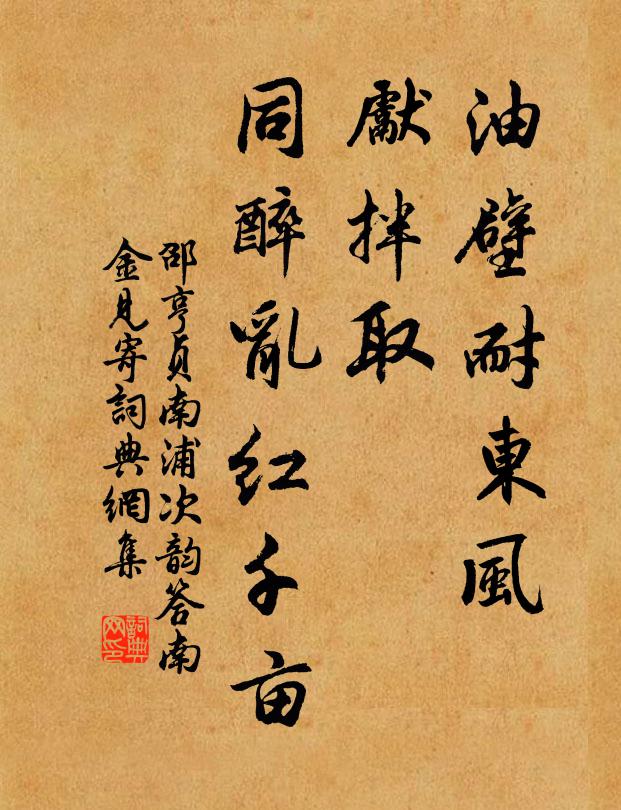 油壁耐東風
獻拌取
同醉亂紅千亩
邵亨貞南浦次韵答南
金見寄詞典網集
詞典网印